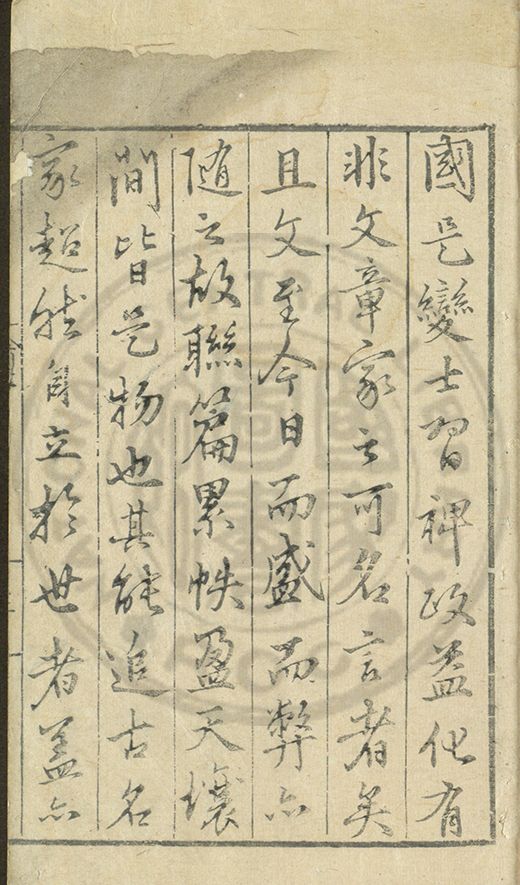 國是變士習裨政益化有
非文章家之可名言者矣
且文至今日而盛而弊亦
隨之故聯篇累帙盈天壤
間皆是物也其能追古名
家超然自立於世者蓋亦